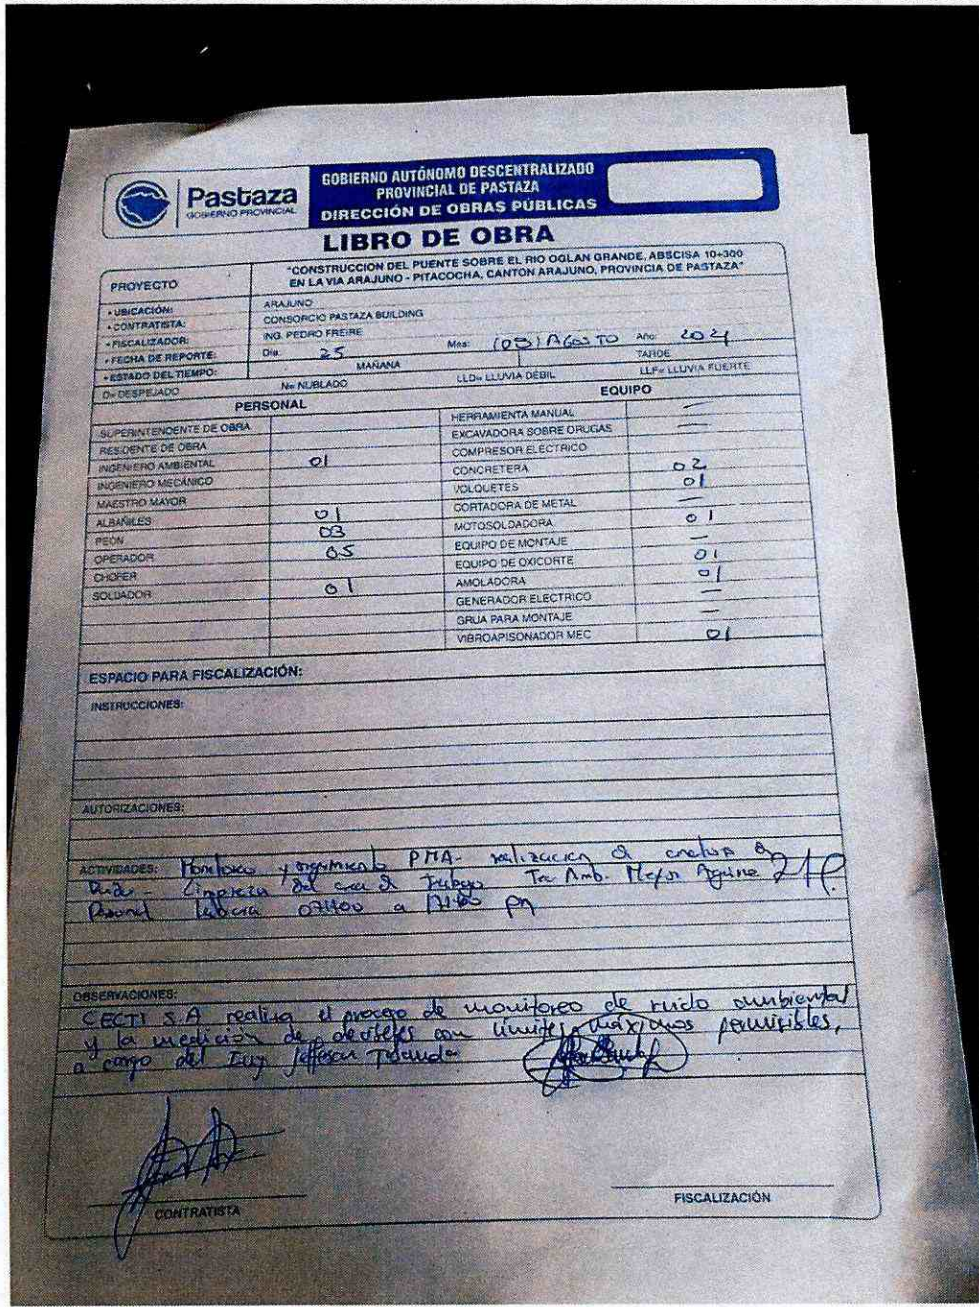 Pastaza
GOBIERNO PROVINCIAL
GOBIERNO AUTÓNOMO DESCENTRALIZADO
PROVINCIAL DE PASTAZA
DIRECCIÓN DE OBRAS PÚBLICAS
LIBRO DE OBRA
PROYECTO "CONSTRUCCION DEL PUENTE SOBRE EL RIO OGLAN GRANDE, ABSCISA 10+300
EN LA VIA ARAJUNO - PITACOCHA, CANTON ARAJUNO, PROVINCIA DE PASTAZA"
• UBICACIÓN: ARAJUNO
• CONTRATISTA: CONSORCIO PASTAZA BUILDING
• FISCALIZADOR: ING. PEDRO FREIRE
• FECHA DE REPORTE: Día: 25 Mes: (08) AGOSTO Año: 2021
• ESTADO DEL TIEMPO: MAÑANA TARDE
D= DESPEJADO N= NUBLADO LLD= LLUVIA DÉBIL LLF= LLUVIA FUERTE
PERSONAL EQUIPO
SUPERINTENDENTE DE OBRA HERRAMIENTA MANUAL —
RESIDENTE DE OBRA EXCAVADORA SOBRE ORUGAS —
INGENIERO AMBIENTAL 01 COMPRESOR ELÉCTRICO
INGENIERO MECÁNICO CONCRETERA 02
MAESTRO MAYOR VOLQUETES 01
ALBAÑILES 01 CORTADORA DE METAL —
PEÓN 03 MOTOSOLDADORA 01
OPERADOR 05 EQUIPO DE MONTAJE —
CHOFER EQUIPO DE OXICORTE 01
SOLDADOR 01 AMOLADORA 01
GENERADOR ELÉCTRICO —
GRUA PARA MONTAJE —
VIBROAPISONADOR MEC 01
ESPACIO PARA FISCALIZACIÓN:
INSTRUCCIONES:
AUTORIZACIONES:
ACTIVIDADES: Monitoreo y seguimiento PMA- realización
Ruido - Limpieza del area de trabajo Tec. Amb.
Personal labora 07H00 a 17H00 pm
OBSERVACIONES:
CECTI S.A realiza el proceso de monitoreo de ruido ambiental
y la medición de decibeles con límites máximos permisibles,
a cargo del Ing Jefferson
CONTRATISTA
FISCALIZACIÓN